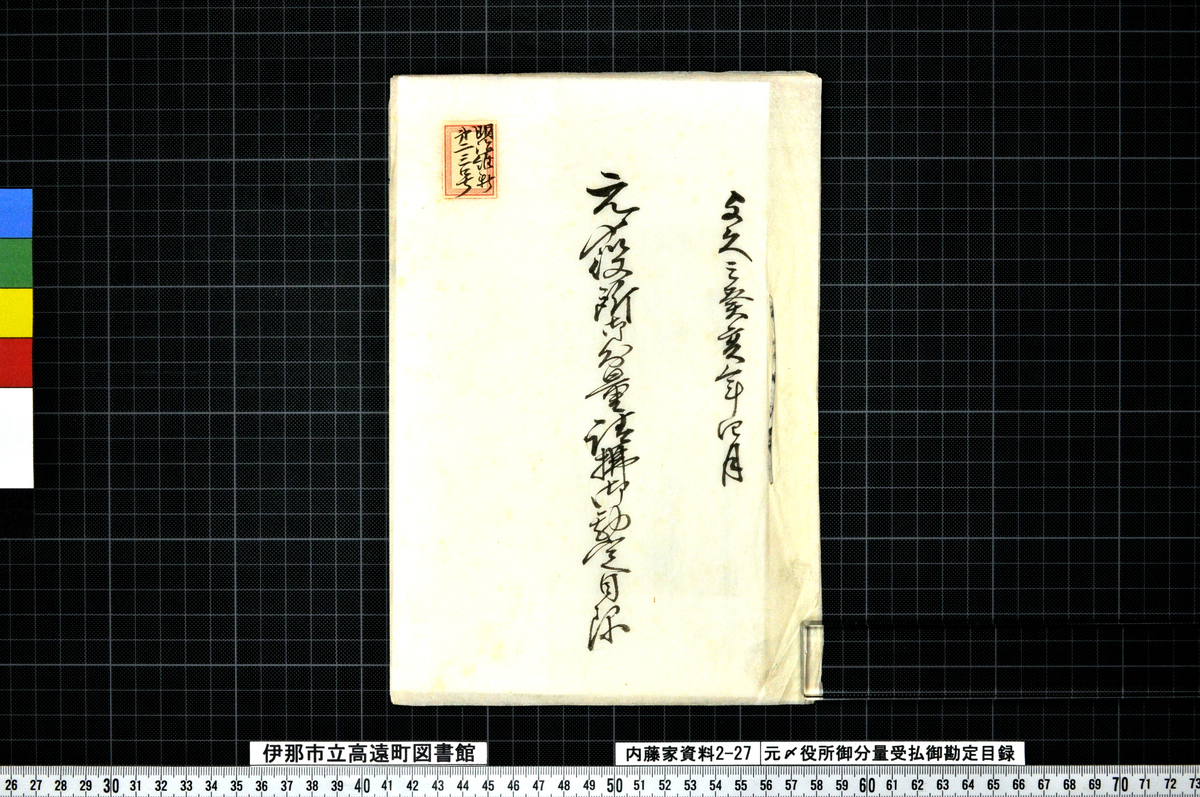 文久三癸亥年四月
元〆役所御分量請拂御勘定目録
伊那市立高遠町図書館
内藤家資料2-27 元〆役所御分量受払御勘定目録
26 27 28 29 30 31 32 33 34 35 36 37 38 39 40 41 42 43 44 45 46 47 48 49 50 51 52 53 54 55 56 57 58 59 60 61 62 63 64 65 66 67 68 69 70 71 72 73